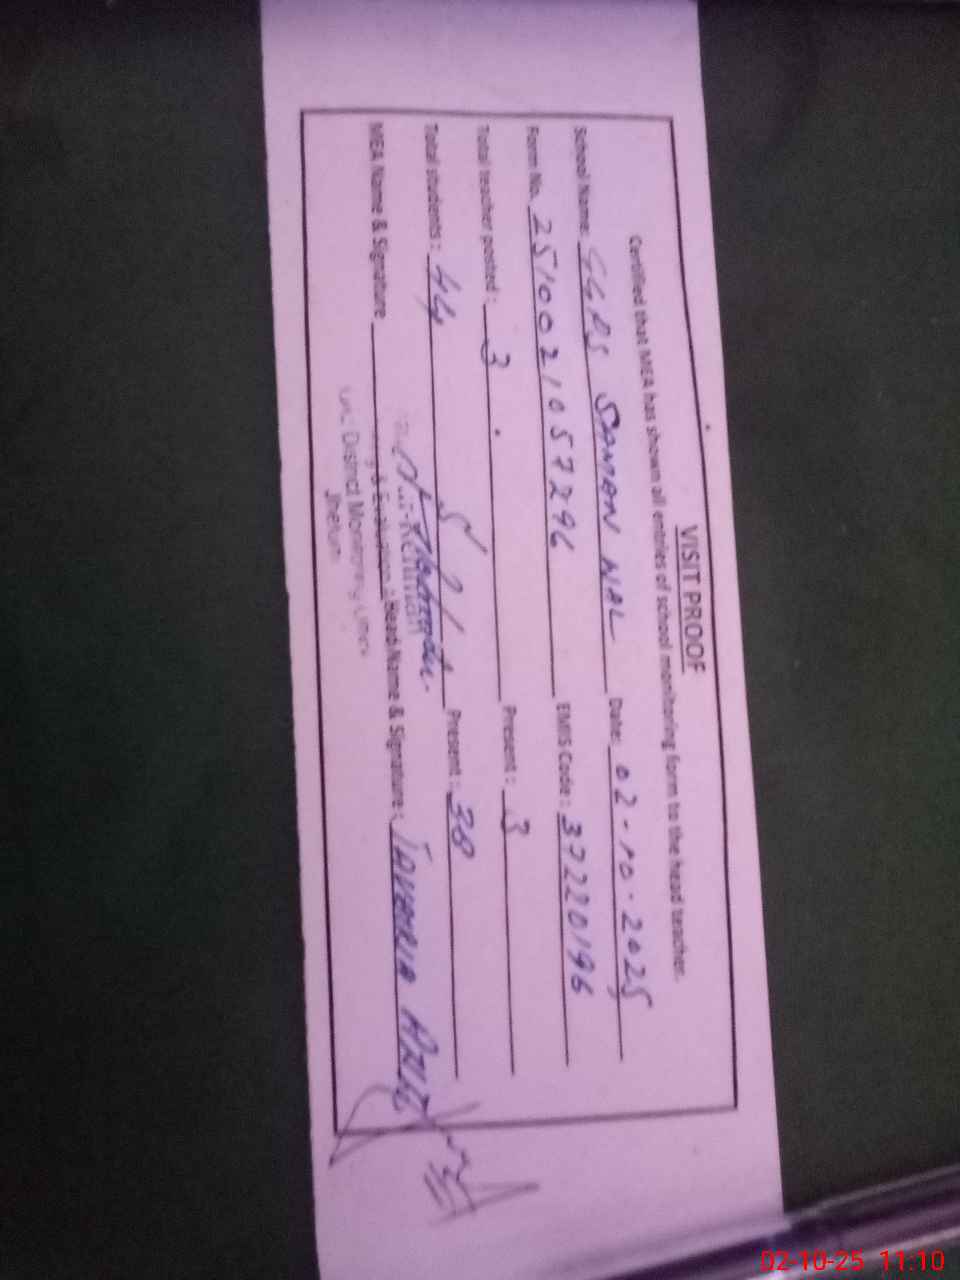 VISIT PROOF
Certified that MEA has shown all entries of school monitoring form to the head teacher.
School Name: GGPS SAMAN NAL Date: 02-10-2025
Form No. 2510021057296 EMIS Code: 37220196
Total teacher posted: 3 Present: 3
Total students: 44 Present: 38
MEA Name & Signature Head Name & Signature: JAVERIA
& Evaluation
District Monitoring
Jhelum
02-10-25 11:10